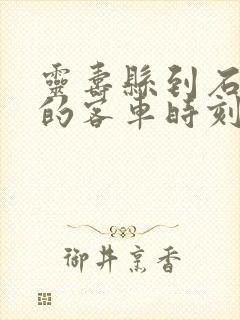 靈壽縣到石
的客車時刻
御井烹香